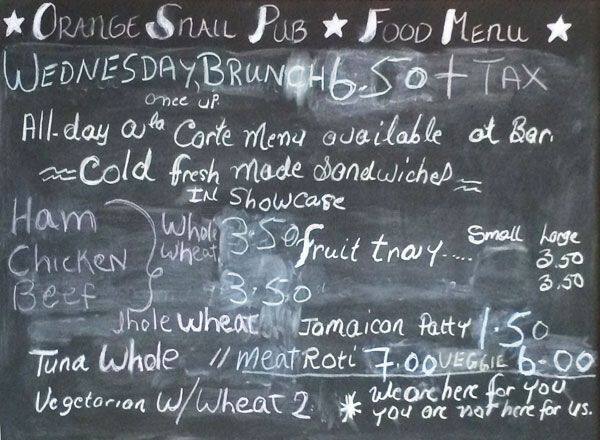 ★ ORANGE SNAIL PUB ★ FOOD MENU ★
WEDNESDAY, BRUNCH 6.50 + TAX
All-day a la Carte Menu available at Bar.
≈Cold fresh made Sandwiches≈
IN Showcase
Ham
Chicken
Beef
Whole
Wheat
3.50
3.50
Fruit tray..... Small Large
3.50
3.50
hole Wheat Jamaican Patty 1.50
Tuna Whole // Meat Roti 7.00 VEGGIE 6.00
Vegetarian W/Wheat 2.
* we are here for you
you are not here for us.